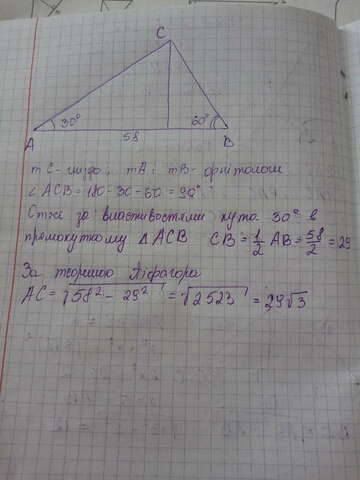 C
30°
60°
A
58
B
т C - гніздо; т A і т B - орнітологи
∠ ACB = 180 - 30 - 60 = 90°
Отже за властивостями кута 30° в
прямокутному △ ACB CB = 1/2 AB = 58/2 = 29
За теоремою Піфагора
AC = √58² - 29² = √2523 = 29√3